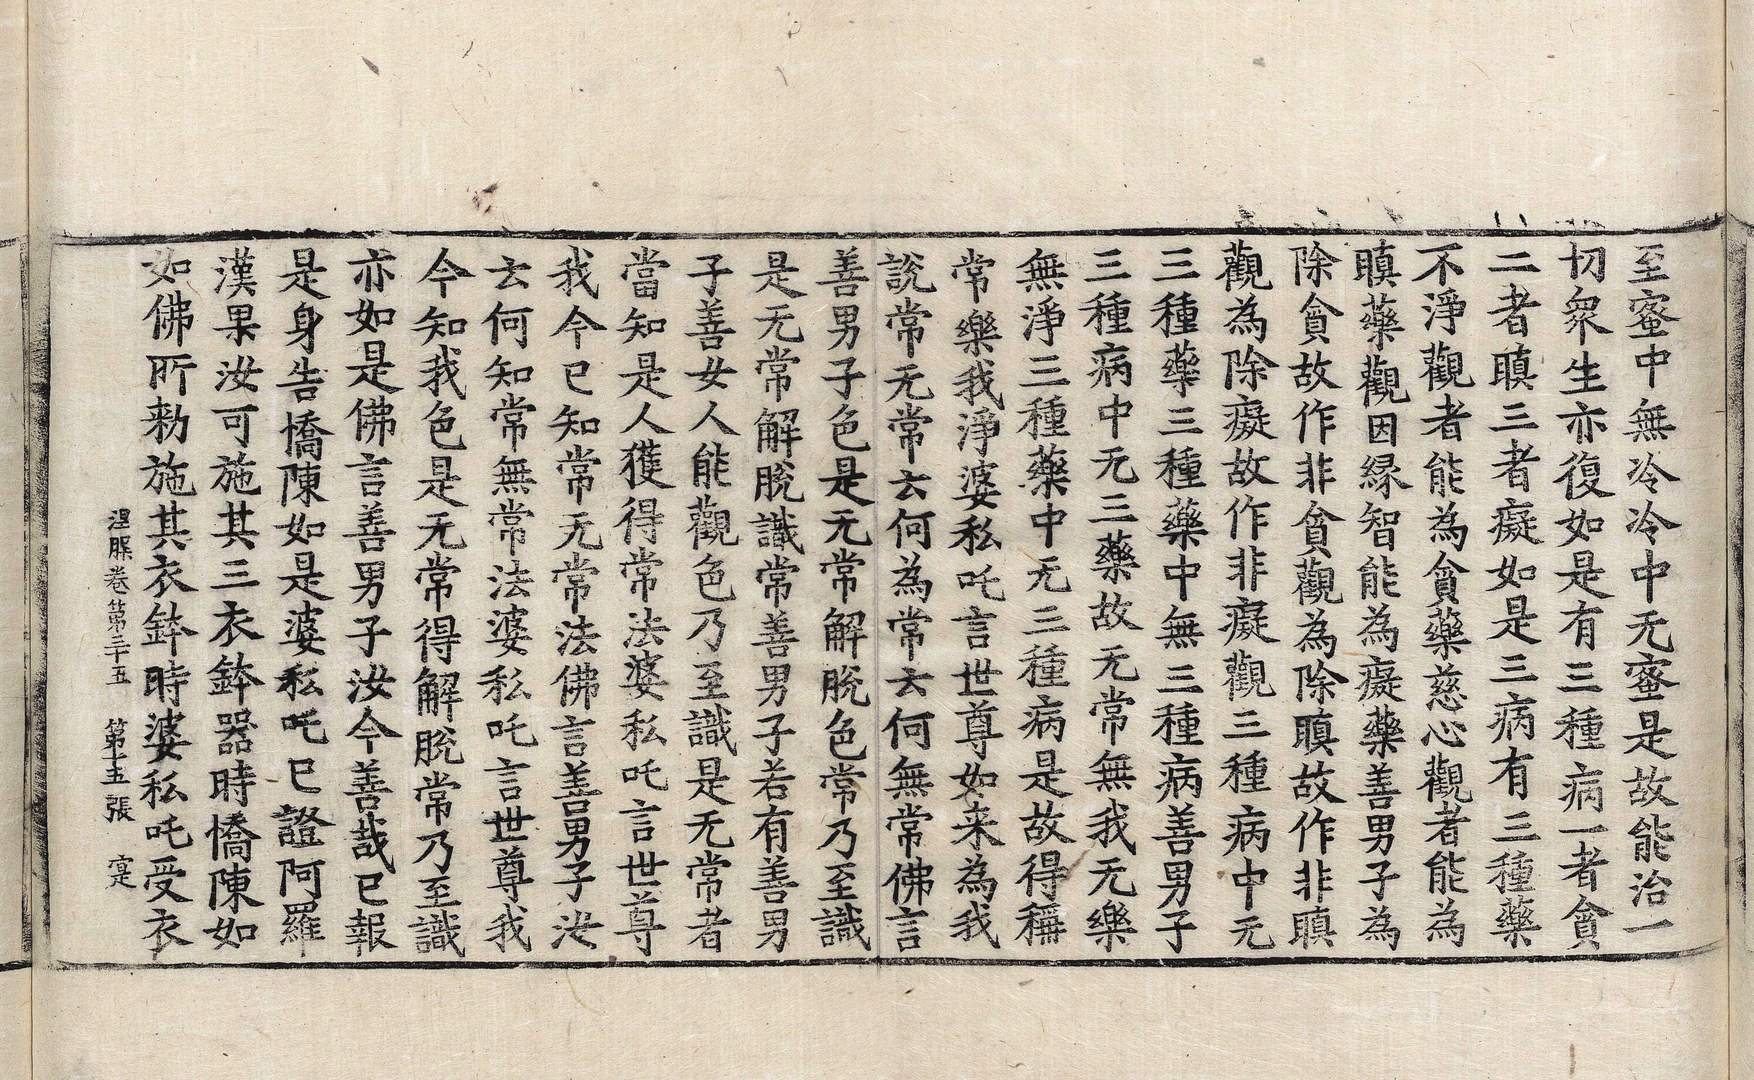 至蜜中無冷冷中无蜜是故能治一
切衆生亦復如是有三種病一者貪
二者瞋三者癡如是三病有三種藥
不淨觀者能為貪藥慈心觀者能為
瞋藥觀因縁智能為癡藥善男子為
除貪故作非貪觀為除瞋故作非瞋
觀為除癡故作非癡觀三種病中无
三種藥三種藥中無三種病善男子
三種病中无三藥故无常無我无樂
無淨三種藥中无三種病是故得稱
常樂我淨婆私吒言世尊如来為我
說常无常云何為常云何無常佛言
善男子色是无常解脫色常乃至識
是无常解脫識常善男子若有善男
子善女人能觀色乃至識是无常者
當知是人獲得常法婆私吒言世尊
我今已知常无常法佛言善男子汝
云何知常無常法婆私吒言世尊我
今知我色是无常得解脫常乃至識
亦如是佛言善男子汝今善哉已報
是身告憍陳如是婆私吒已證阿羅
漢果汝可施其三衣鉢器時憍陳如
如佛所勑施其衣鉢時婆私吒受衣
涅槃卷第三十五 第十五張 寔